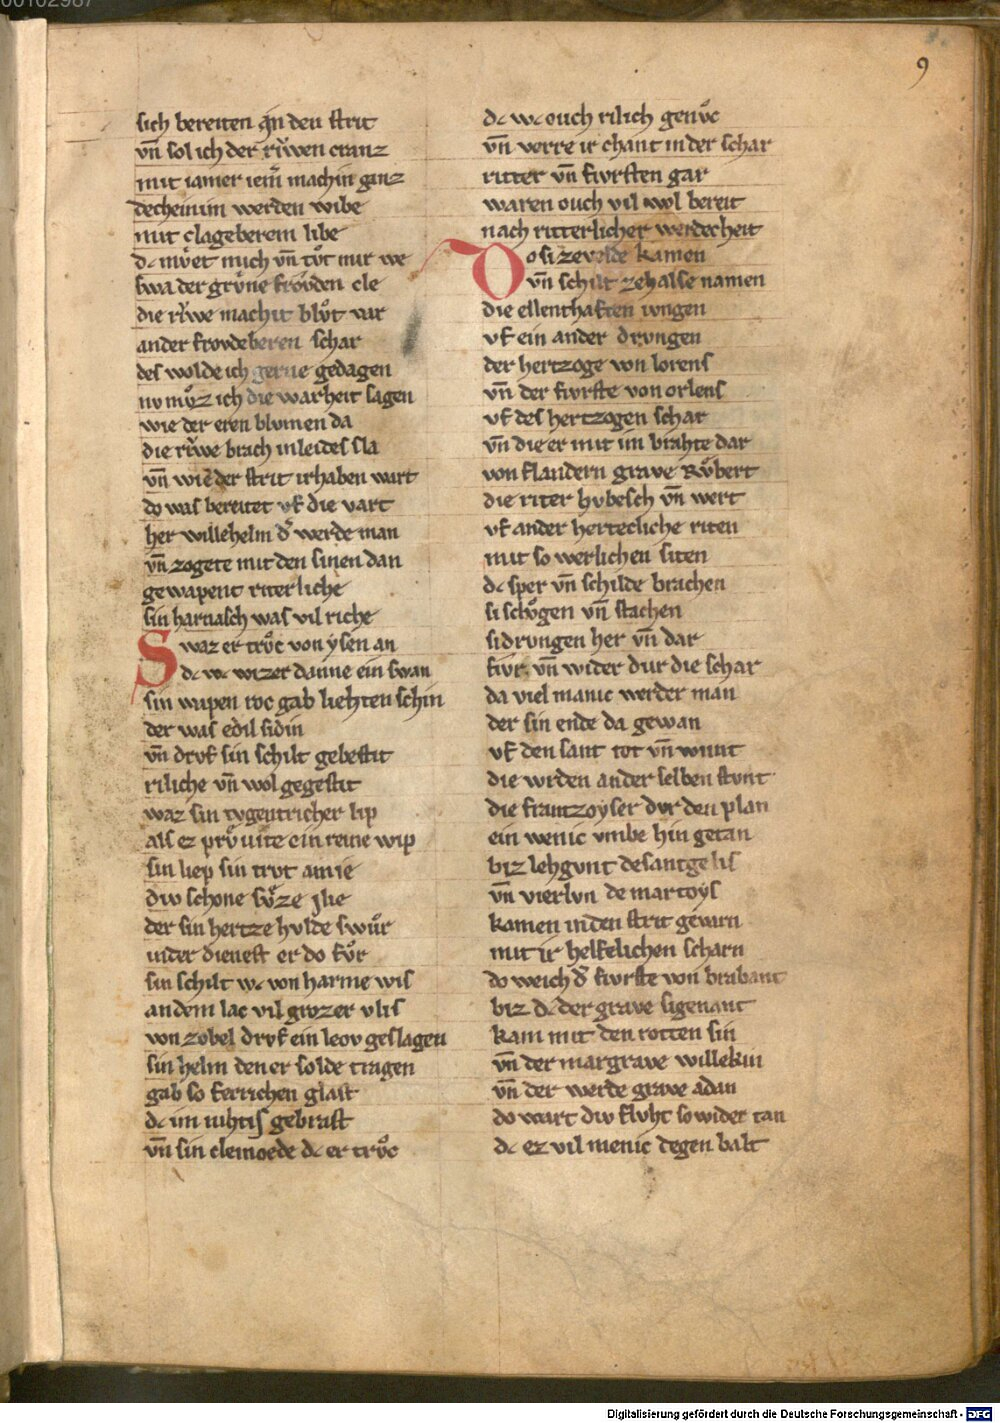 00102987
9
sich bereiten an den strit
vn̄ sol ich der rv̍wen cranz
mit iamer iem̄ machin ganz
decheinim werden wibe
mit clageberem libe
dc mv̍et mich vn̄ tuͦt mir we
swa der grv̍ne froͤuden cle
die rv̍we machit bluͦt var
ander froudeberen schar
des wolde ich gerne gedagen
nv muͦz ich die warheit sagen
wie der eren blvmen da
die rv̍we brach in leides sla
vn̄ wie der strit irhaben wart
do was bereitet vf die vart
her willehelm d̓ werde man
vn̄ zogete mit den sinen dan
gewapent riterliche
sin harnasch was vil riche
Swaz er truͦc von ysen an
dc wc wizer danne ein swan
sin wapen roc gab liehten schin
der was edil sidin
vn̄ drvf sin schilt gebestit
riliche vn̄ wol gegestit
waz sin tvgentricher lip
als ez pruͤuite ein reine wip
sin liep sin trvt amie
div schone suͤze ylie
der sin hertze hvlde swuͦr
in der dienest er do fuͦr
sin schilt wc von harme wis
an dem lac vil grozer vlis
von zobel drvf ein leov geslagen
sin helm den er solde tragen
gab so ferrichen glast
dc im nihtis gebrast
vn̄ sin cleinoede dc er truͦc
dc wc ouch rilich genuͦc
vn̄ verre ir chant in der schar
ritter vn̄ fivrsten gar
waren ouch vil wol bereit
nach ritterlicher werdecheit
Do si ze velde kamen
vn̄ schilt ze halse namen
die ellenthaften ivngen
vf ein ander drvngen
der hertzoge von lorens
vn̄ der fivrste von orlens
vf des hertzogen schar
vn̄ die er mit im brahte dar
von flandern grave Ruͦbert
die riter hvbesch vn̄ wert
vf ander hertecliche riten
mit so werlichen siten
dc sper vn̄ schilde brachen
si schuͦgen vn̄ stachen
si drvngen her vn̄ dar
fivr vn̄ wider dur die schar
da viel manic werder man
der sin ende da gewan
vf den sant tot vn̄ wunt
die wrden ander selben stvnt
die frantzoyser dvr den plan
ein wenic vmbe hin getan
biz lehgvnt desantgelis
vn̄ vierlvn de martoys
kamen in den strit gevarn
mit ir helfelichen scharn
do weich d̓ fivrste von brabant
biz dc der grave sigenant
kam mit den rotten sin
vn̄ der margrave willekin
vn̄ der werde grave adan
do wart div flvht so wider tan
dc ez vil menic degen balt
Digitalisierung gefördert durch die Deutsche Forschungsgemeinschaft - DFG